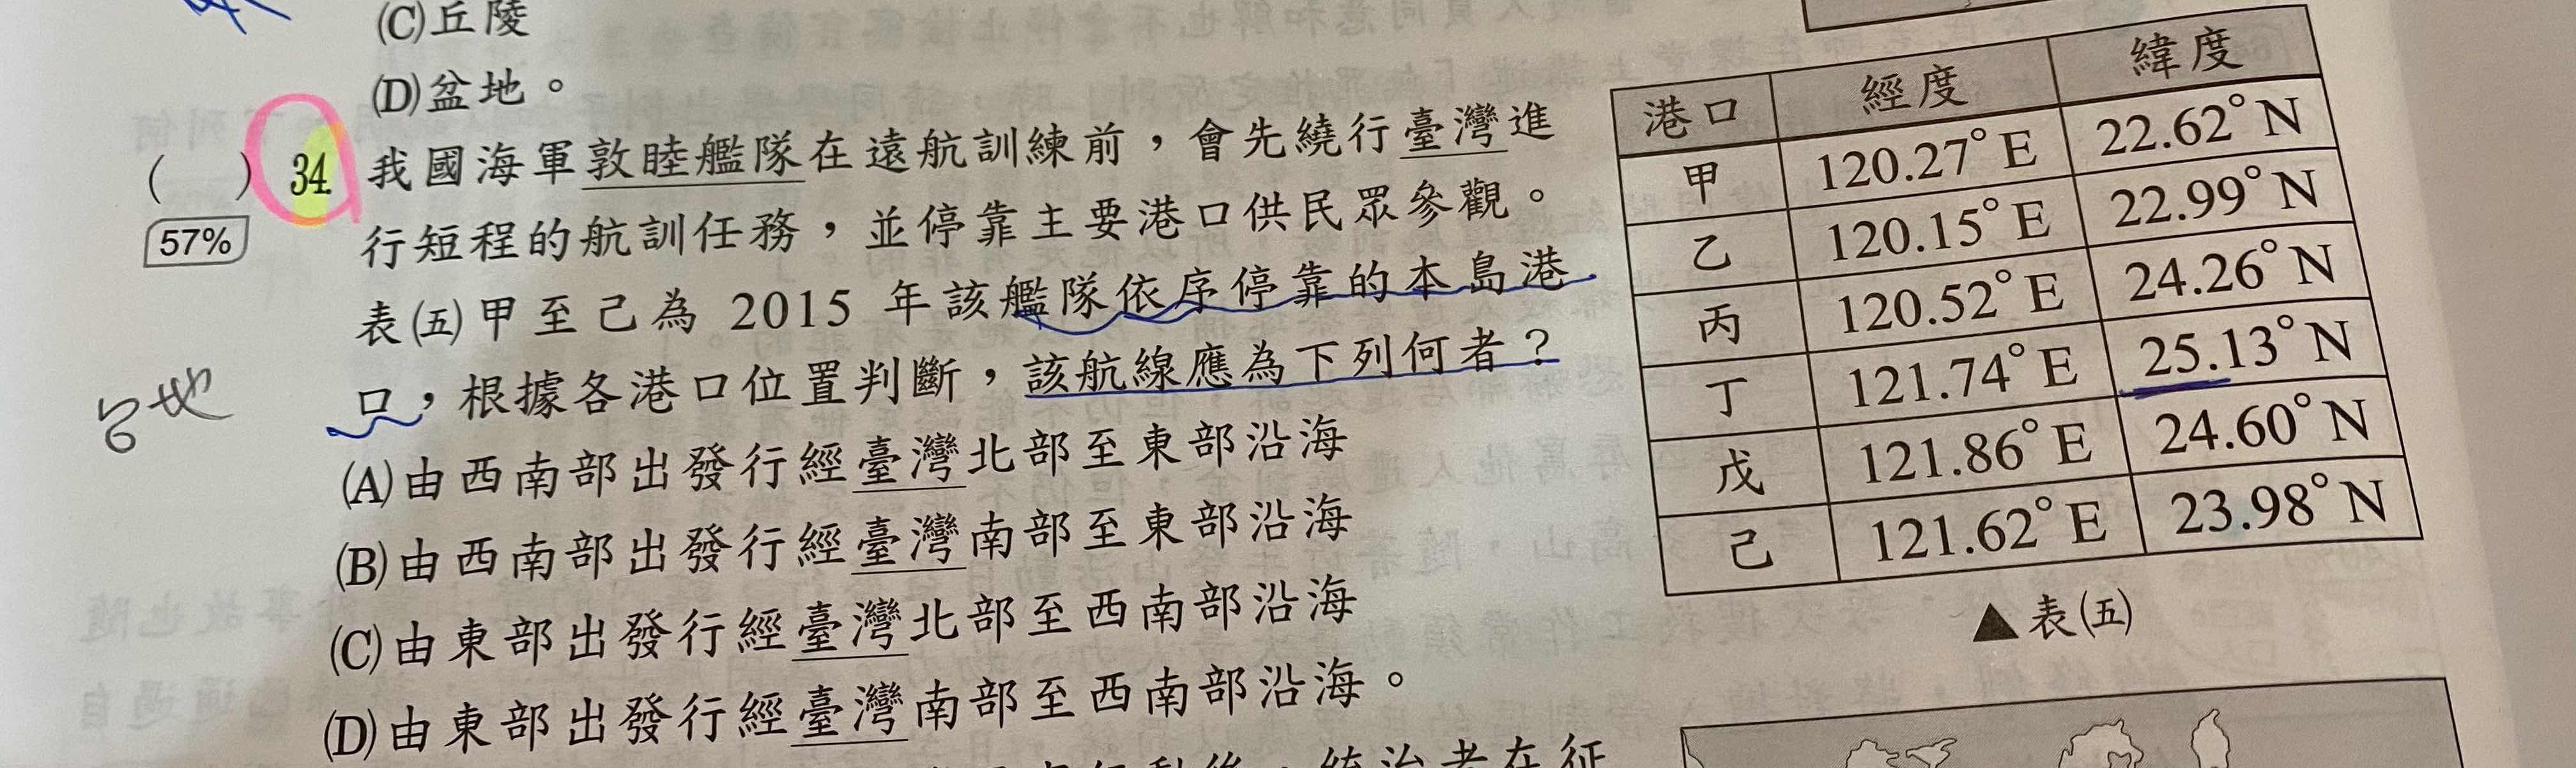 (C)丘陵
(D)盆地。
(　)34.我國海軍敦睦艦隊在遠航訓練前，會先繞行臺灣進
57%
行短程的航訓任務，並停靠主要港口供民眾參觀。
表(五)甲至己為 2015 年該艦隊依序停靠的本島港
口，根據各港口位置判斷，該航線應為下列何者？
(A)由西南部出發行經臺灣北部至東部沿海
(B)由西南部出發行經臺灣南部至東部沿海
(C)由東部出發行經臺灣北部至西南部沿海
(D)由東部出發行經臺灣南部至西南部沿海。
港口 經度 緯度
甲 120.27°E 22.62°N
乙 120.15°E 22.99°N
丙 120.52°E 24.26°N
丁 121.74°E 25.13°N
戊 121.86°E 24.60°N
己 121.62°E 23.98°N
▲表(五)